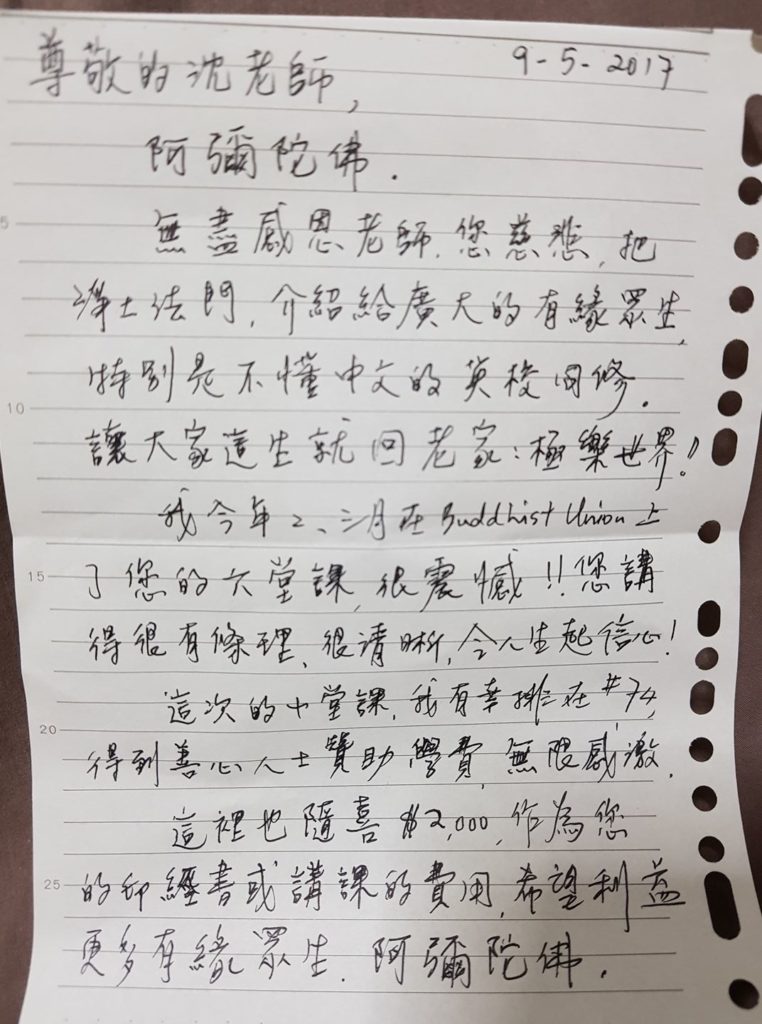 9-5-2017
尊敬的沈老師,
阿彌陀佛.
無盡感恩老師.您慈悲,把
淨土法門,介紹給廣大的有緣眾生,
特別是不懂中文的英校同修.
讓大家這生就回老家:極樂世界!
我今年2、三月在Buddhist Union上
了您的六堂課,很震憾!!您講
得很有條理、很清晰,令人生起信心!
這次的十堂課,我有幸排在#74,
得到善心人士贊助學費,無限感激.
這裡也隨喜$2,000,作為您
的印經書或講課的費用,希望利益
更多有緣眾生.阿彌陀佛.
5
10
15
20
25